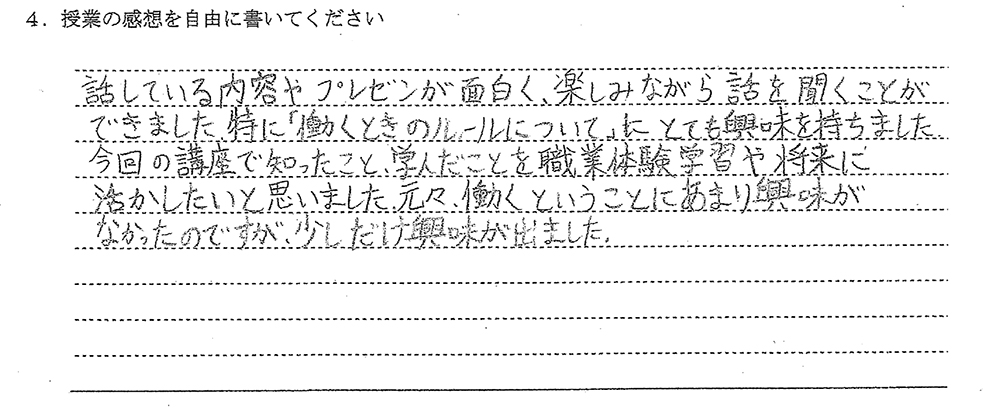 4. 授業の感想を自由に書いてください
話している内容やプレゼンが面白く、楽しみながら話を聞くことが
できました。特に「働くときのルールについて」にとても興味を持ちました
今回の講座で知ったこと、学んだことを職業体験学習や将来に
活かしたいと思いました。元々、働くということにあまり興味が
なかったのですが、少しだけ興味が出ました。